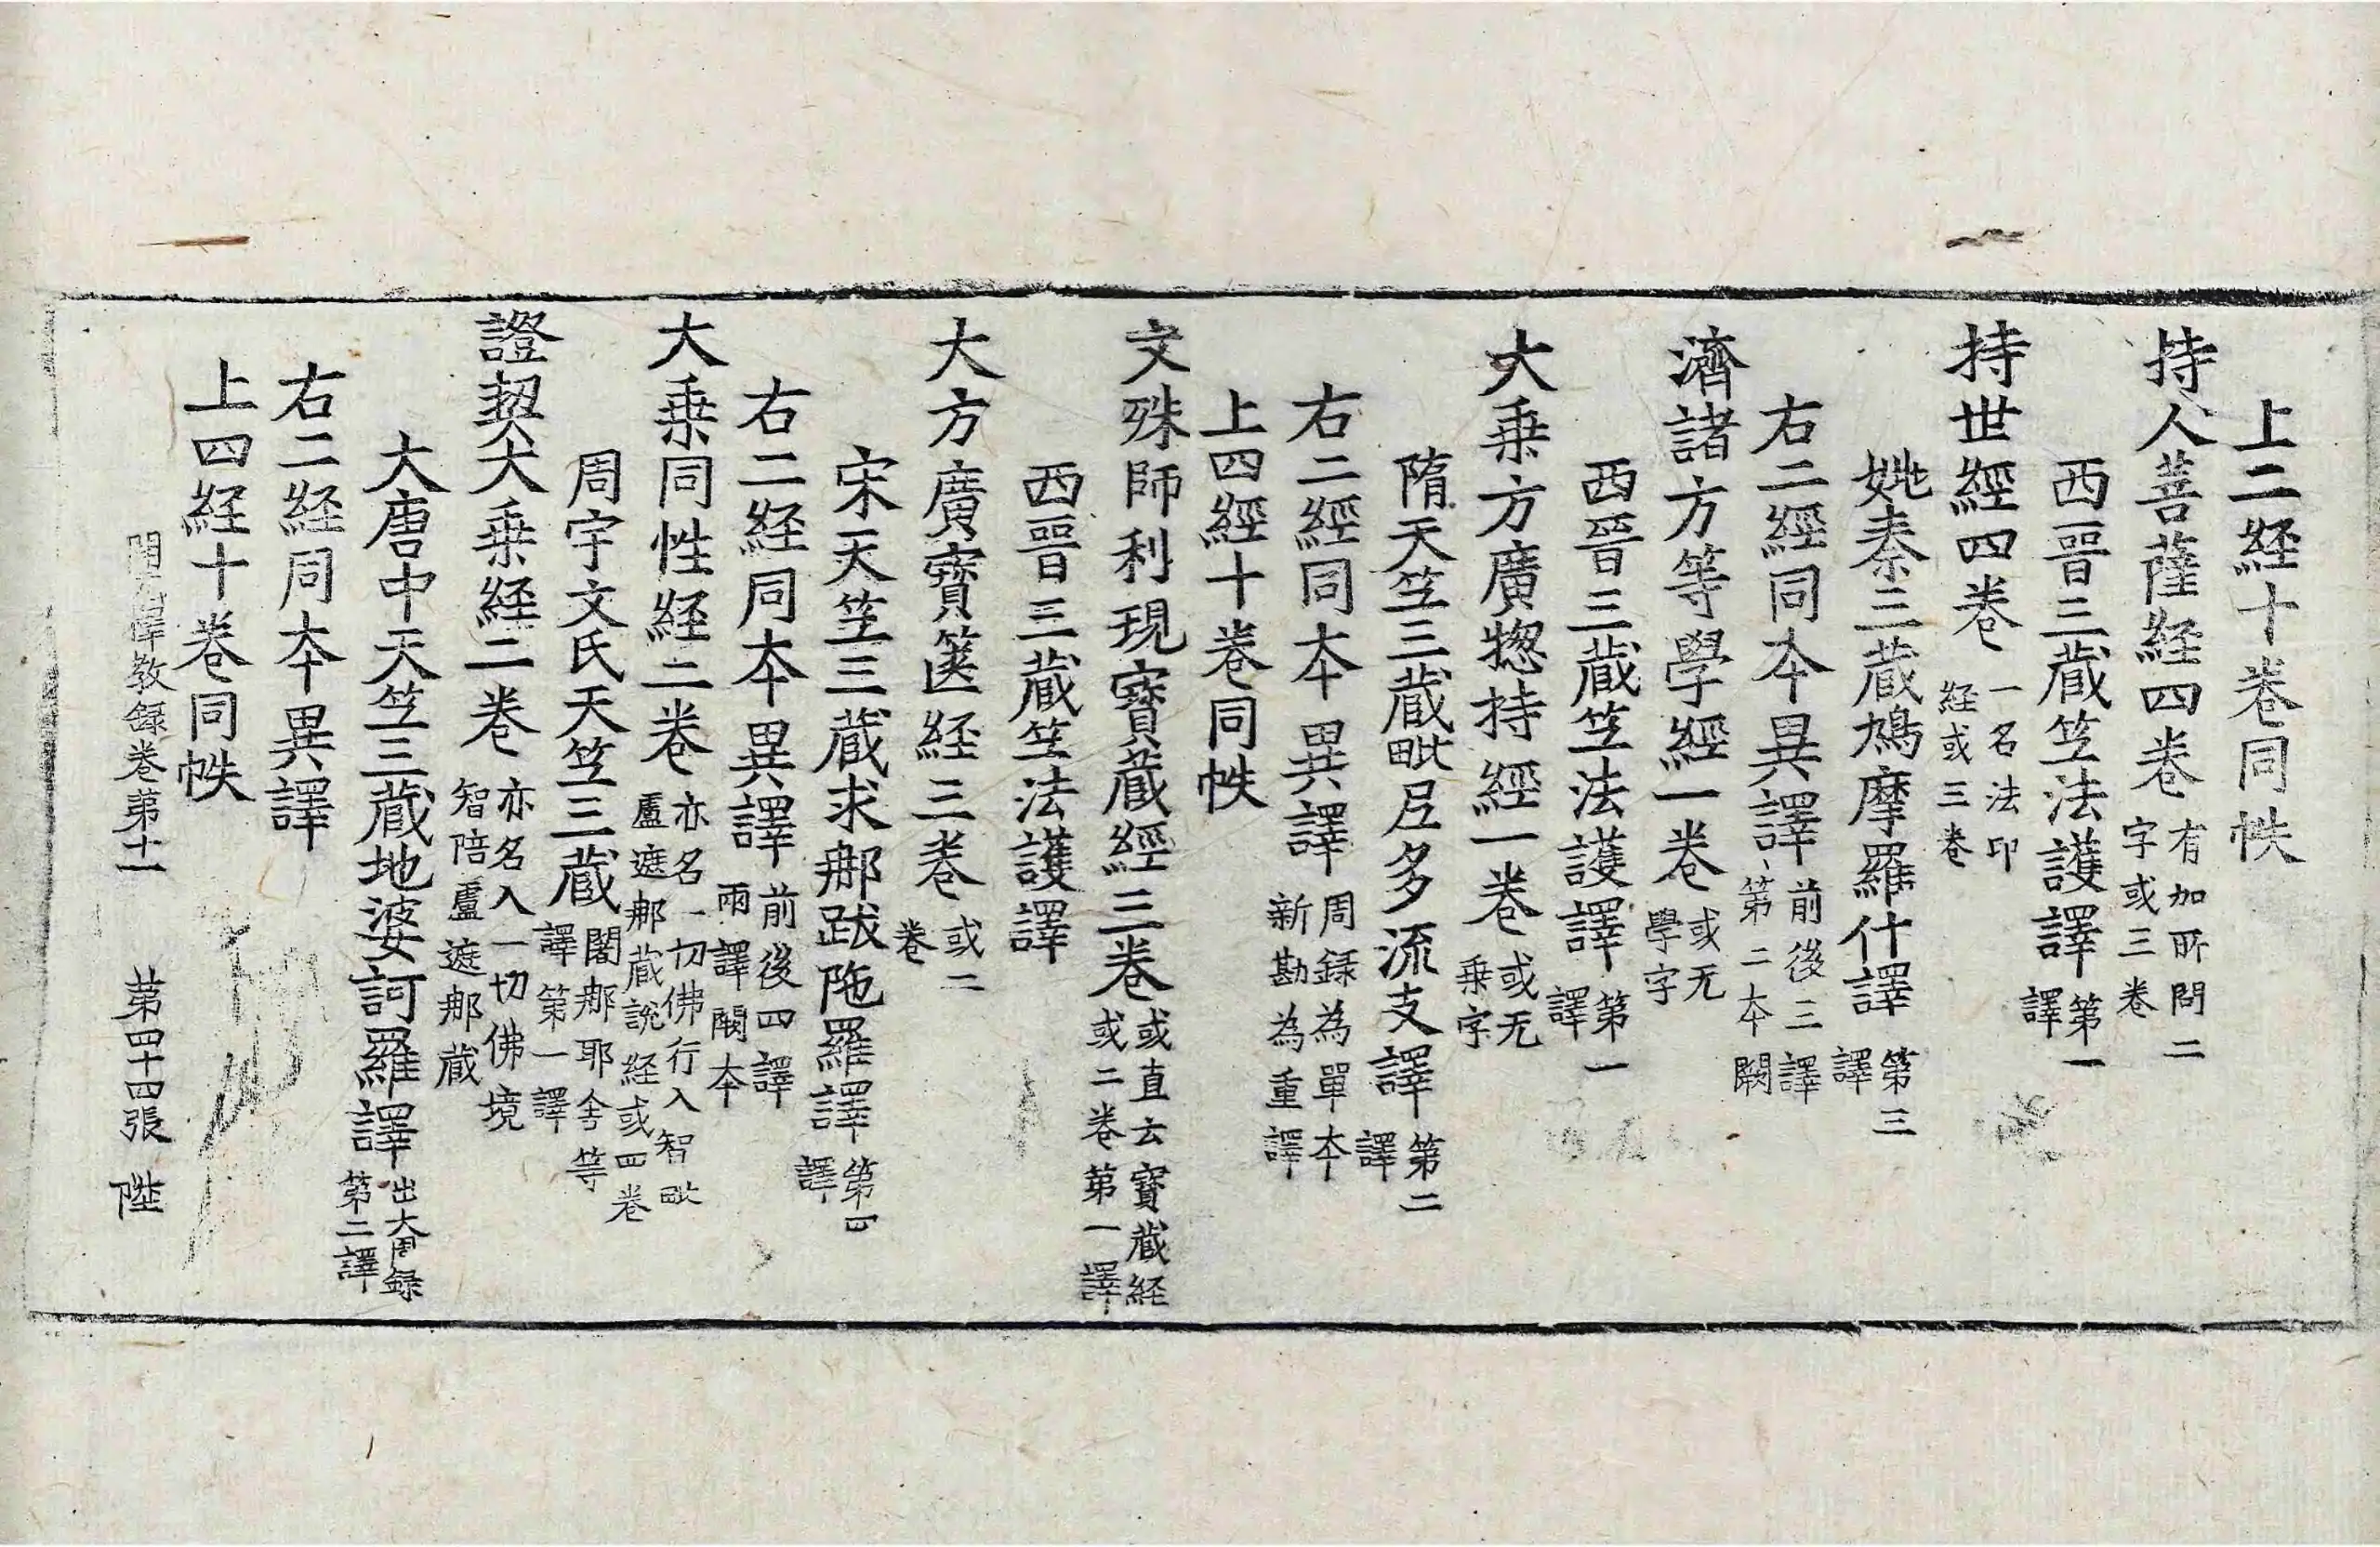 上二経十卷同帙
持人菩薩経四卷 有加所問二字或三卷
西晋三蔵竺法護譯 第一譯
持世經四卷 一名法印経或三卷
姚秦三蔵鳩摩羅什譯 第三譯
右二經同本異譯 前後三譯第二本闕
濟諸方等學經一卷 或无學字
西晋三蔵竺法護譯 第一譯
大乗方廣揔持經一卷 或无乗字
隋天竺三蔵毗尼多流支譯 第二譯
右二經同本異譯 周録為單本新勘為重譯
上四經十卷同帙
文殊師利現寳蔵經三卷 或直云寳蔵経或二卷第一譯
西晋三蔵竺法護譯
大方廣寳篋経三卷 或二卷
宋天竺三蔵求那跋陁羅譯 第四譯
右二経同本異譯 前後四譯兩譯闕本
大乗同性経二卷 亦名一切佛行入智毗盧遮那蔵說経或四卷
周宇文氏天竺三蔵 闍那耶舎等譯第一譯
證契大乗経二卷 亦名入一切佛境智陪盧遮那蔵
大唐中天竺三蔵地婆訶羅譯 出大周録第二譯
右二経同本異譯
上四経十卷同帙
開元釋教録卷第十一 第四十四張 陛